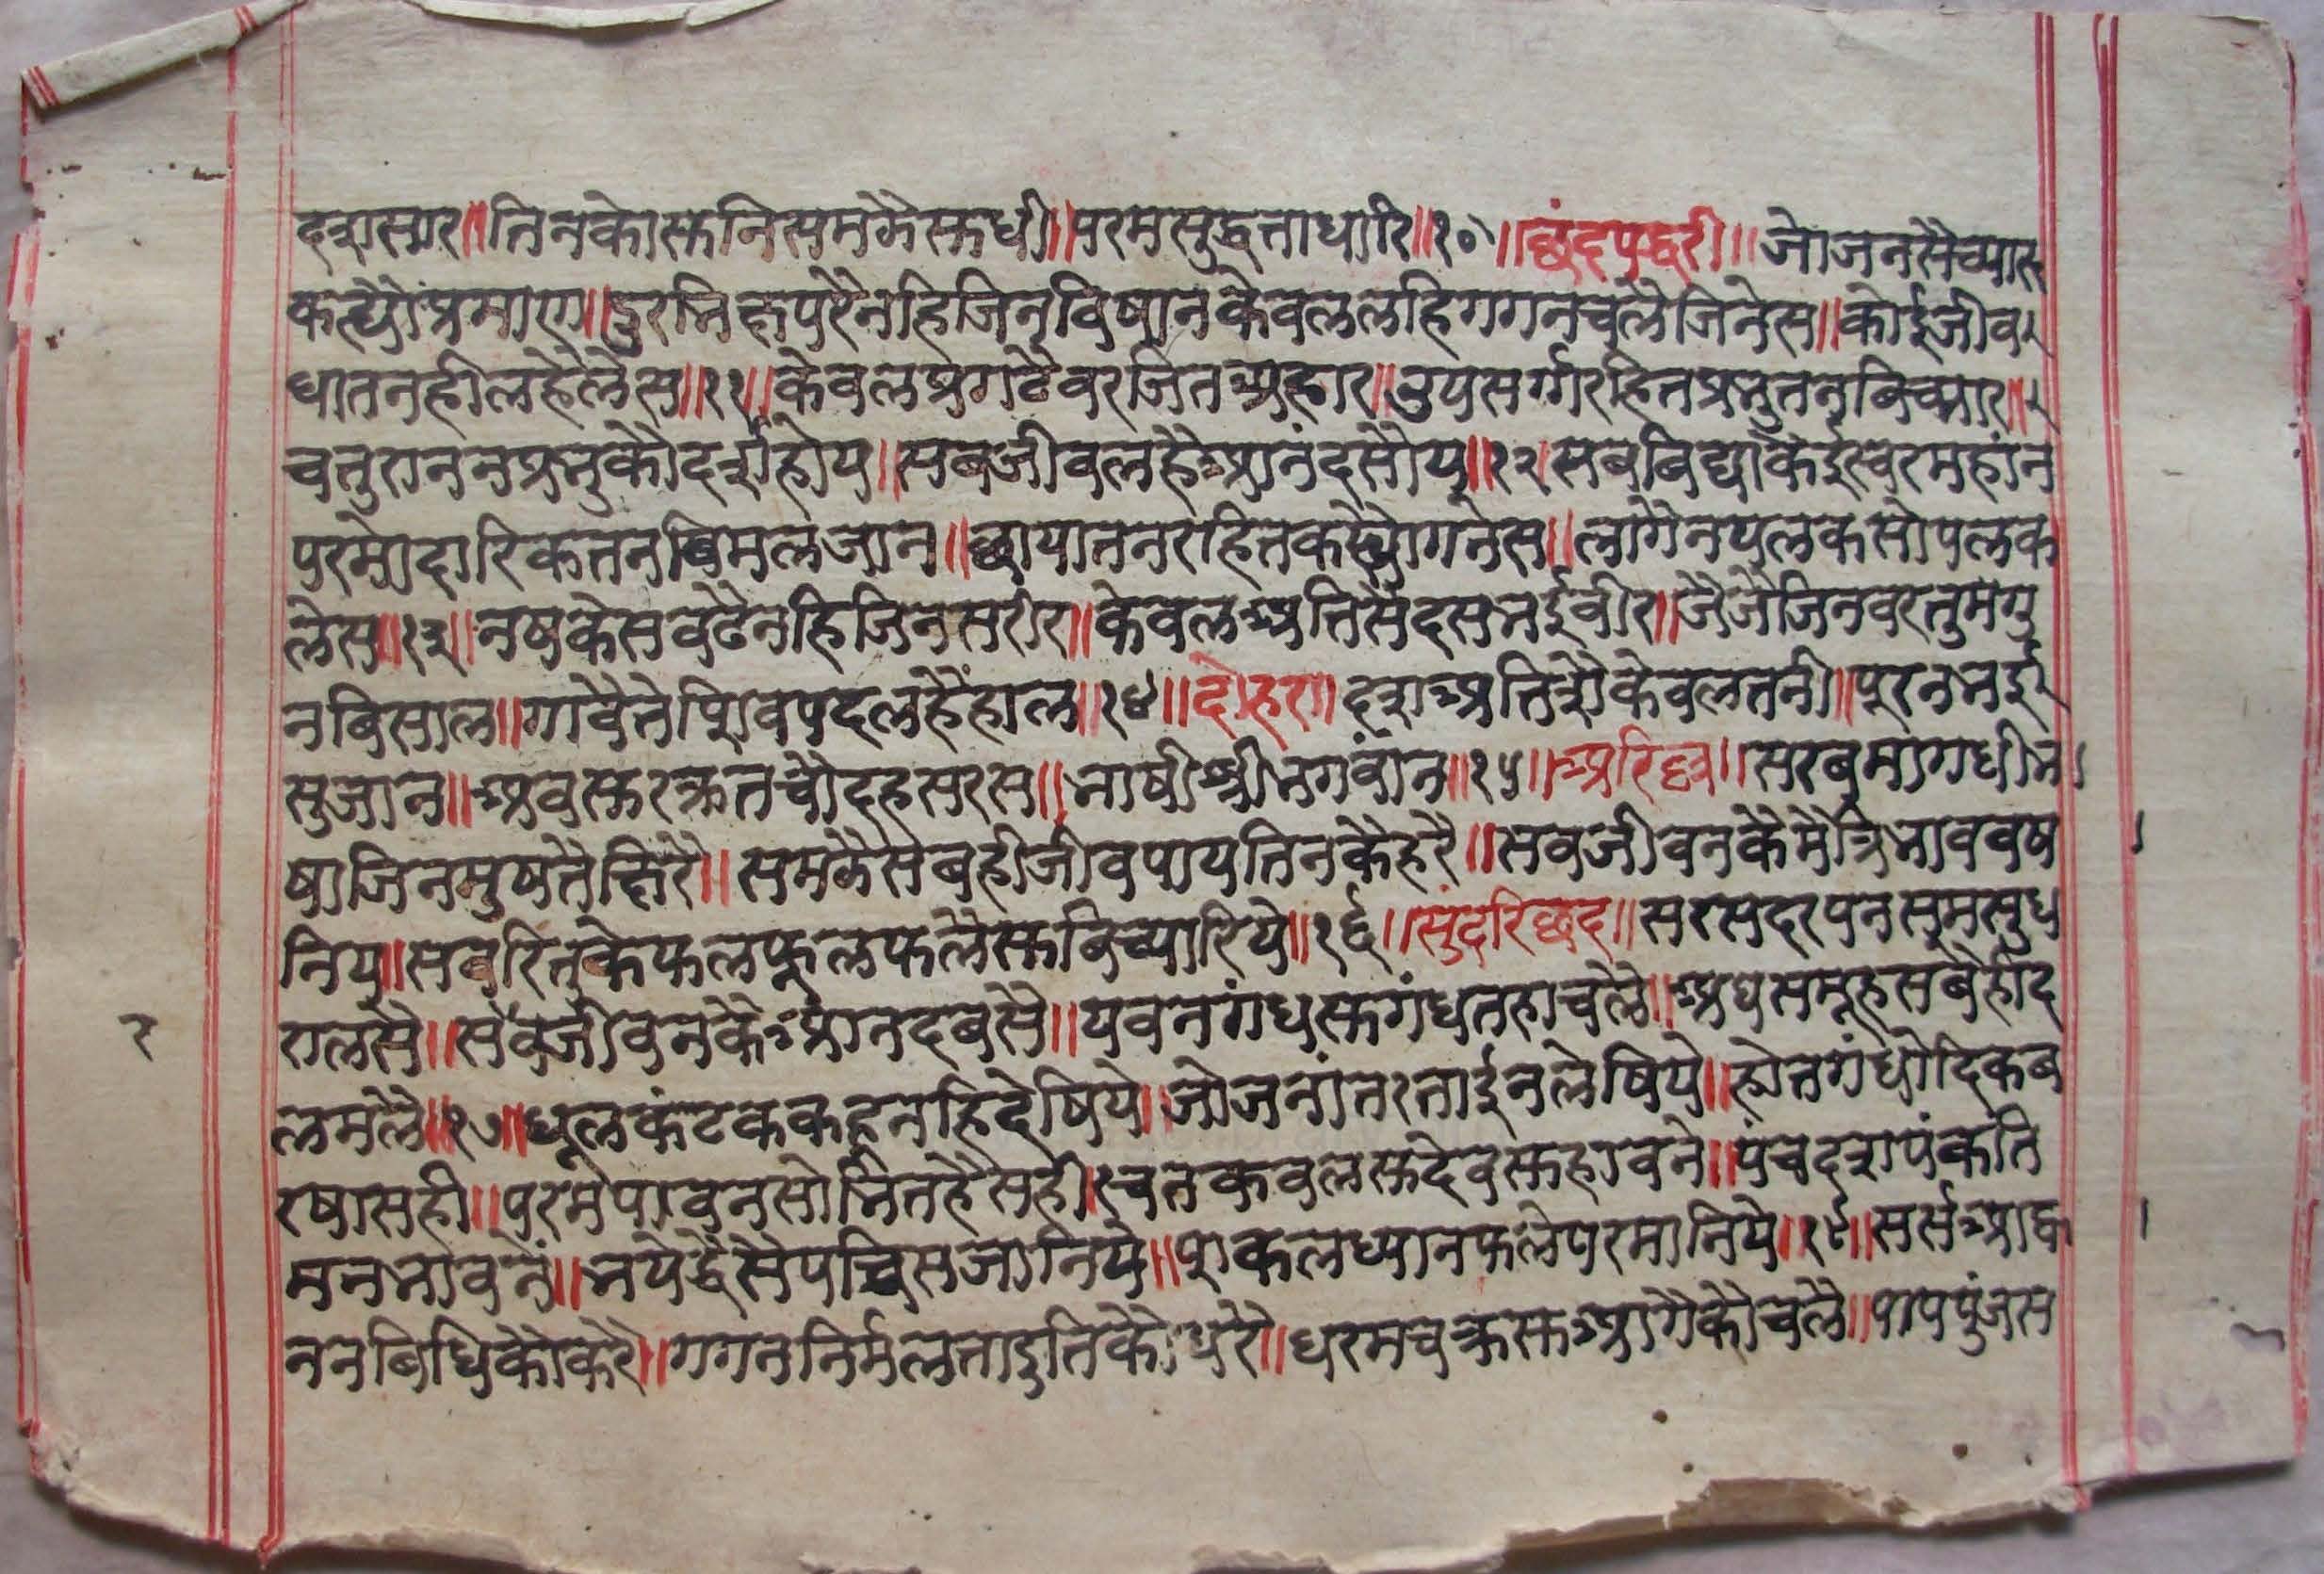 दशसार॥तिनकोसुनिसमझैसुधी॥परमसुद्धताधारि॥१०॥छंदपद्धरी॥जोजनसैच्यारु
कह्यौप्रमाण॥दुरभिक्षपरैनहिजिनविषानकेवललहिगगनचलैजिनेस॥कोईजीव
घातनहीलहैलेस॥११॥केवलप्रगटैवरजितअहार॥उपसर्ग्गरहितप्रभुतनविच्यार॥
चतुराननप्रभुकौदर्शहोय॥सबजीवलहैआनंदसोय॥१२॥सबबिद्याकेईस्वरमहांन
परमोदारिकतनविमलजान॥छायातनरहितकह्योगनेस॥लागैनपलकसोपलक
लेस॥१३॥नषकेसवढैनहिजिनसरीर॥केवलअतिसैदसभईवीर॥जैजैजिनवरतुमगु
नबिसाल॥गावैतेशिवपदलहैहाल॥१४॥दोहरा॥दशअतिशैकेवलतनी॥पूरनभई
सुजान॥अवसुरक्रतचौदहसरस॥भाषीश्रीभगवांन॥१५॥अरिल्ल॥सरबमागधीभा
षाजिनमुषतैखिरै॥समझैसबहीजीवपापतिनकेहरै॥सवजीवनकैमैत्रिभाववष
निय॥सबरितुकेफलफूलफलैसुविच्यारिये॥१६॥सुंदरिछंद॥सरसदरपनसूमसुध
रालसै॥सवजीवनकैआनदबसै॥पवनगंधसुगंधतहाचलै॥अघसमूहसबैहीद
लमलै॥१७॥धूलकंटककहूनहिदेषिये॥जोजनांतरताईनलेषिये॥होतगंधोदिकब
रषासही॥परमपावनसोभितहैसहीरचतकवलसुदेवसुहावने॥पंचदशपंकति
मनभावनै॥भयेद्वैसैपच्चिसजानिये॥शुकलध्यानफलेपरमानिये॥१८॥सर्सआह्वा
ननबिधिकौकरै॥गगननिर्मलतादुतिकौधरै॥धरमचक्रसुआगैकौचलै॥पापपुंजस
२